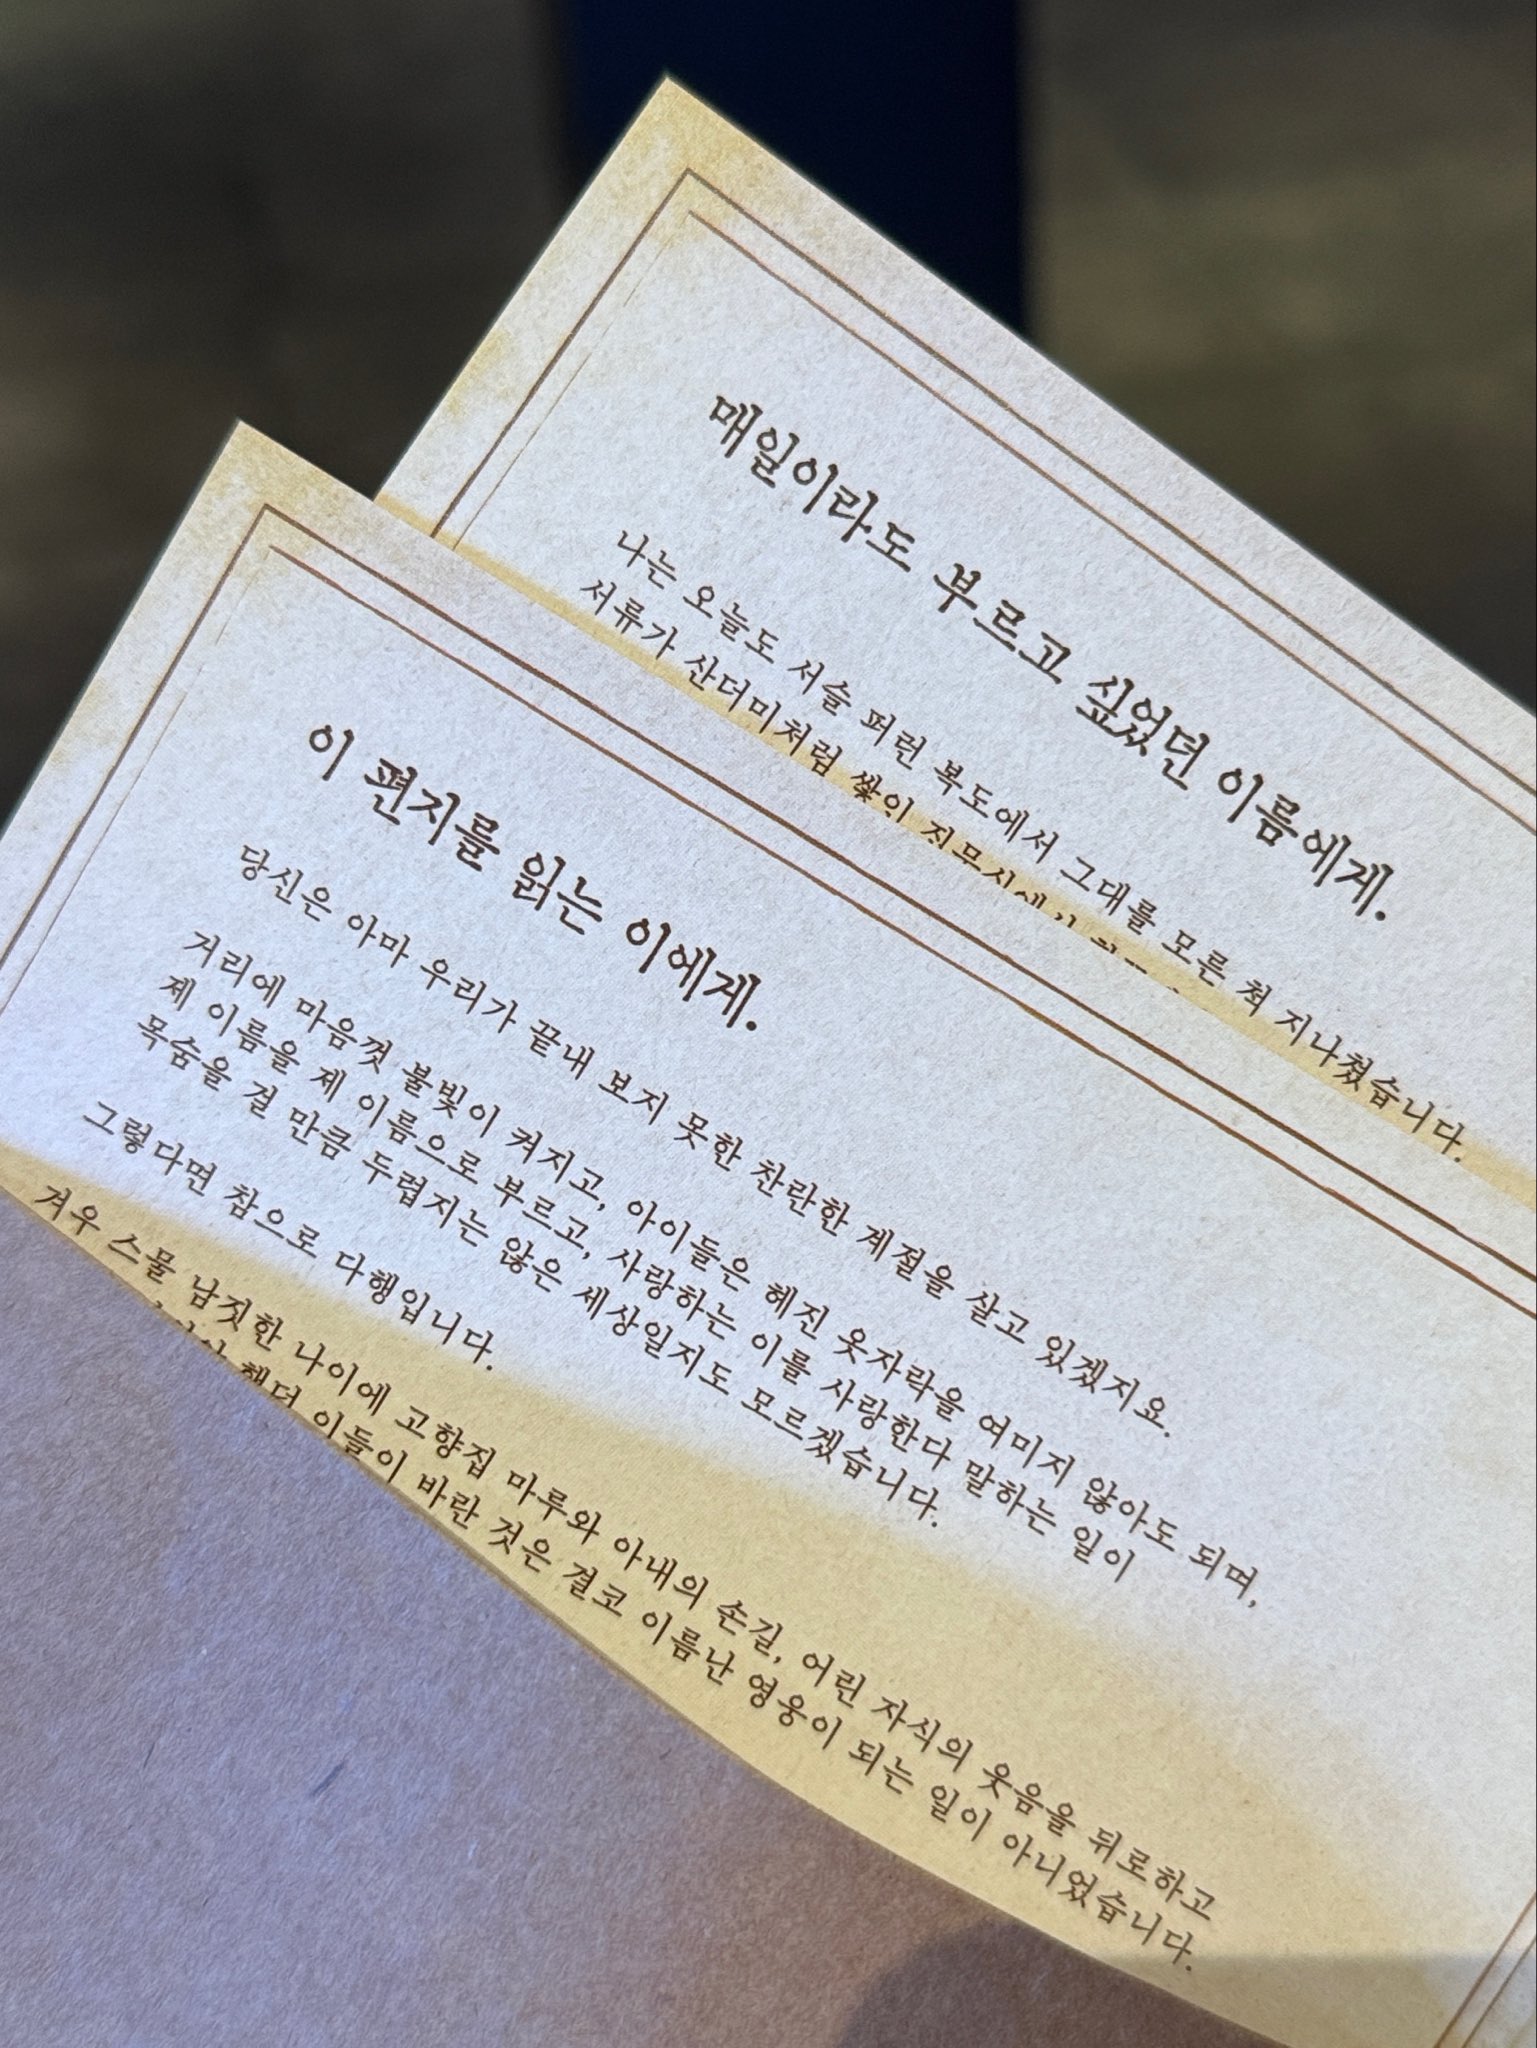 매일이라도 부르고 싶었던 이름에게.
나는 오늘도 서슬 퍼런 복도에서 그대를 모른 척 지나쳤습니다.
서류가 산더미처럼 쌓인 집무실에서
이 편지를 읽는 이에게.
당신은 아마 우리가 끝내 보지 못한 찬란한 계절을 살고 있겠지요.
거리에 마음껏 불빛이 켜지고, 아이들은 헤진 옷자락을 여미지 않아도 되며,
제 이름을 제 이름으로 부르고, 사랑하는 이를 사랑한다 말하는 일이
목숨을 걸 만큼 두렵지는 않은 세상일지도 모르겠습니다.
그렇다면 참으로 다행입니다.
겨우 스물 남짓한 나이에 고향집 마루와 아내의 손길, 어린 자식의 웃음을 뒤로하고
했던 이들이 바란 것은 결코 이름난 영웅이 되는 일이 아니었습니다.